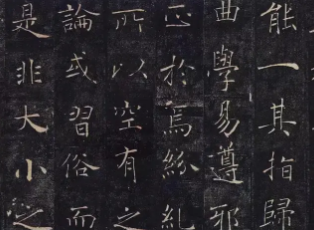 能一其指歸
曲學易遵邪
正於焉紛糺
所以空有之
論或習俗而
是非大小之